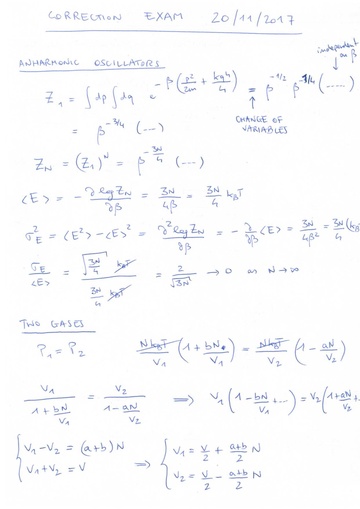 CORRECTION EXAM 20/11/2017
independent on β
ANHARMONIC OSCILLATORS
Z₁ = ∫dp ∫dq e^{-β(p²/2m + kq⁴/4)} = β^{-1/2} β^{-1/4} (......)
CHANGE OF VARIABLES
= β^{-3/4} (---)
Z_N = (Z₁)^N = β^{-3N/4} (---)
<E> = - ∂ log Z_N / ∂β = 3N/4β = 3N/4 k_BT
σ_E² = <E²> - <E>² = ∂² log Z_N / ∂β = - ∂/∂β <E> = 3N/4β² = 3N/4 (k_B
σ_E/<E> = √(3N/4) k_BT / (3N/4 k_BT) = 2/√(3N) → 0 as N → ∞
TWO GASES
P₁ = P₂ Nk_BT/V₁ (1 + bN/V₁) = Nk_BT/V₂ (1 - aN/V₂)
V₁/(1 + bN/V₁) = V₂/(1 - aN/V₂) ⟹ V₁(1 - bN/V₁ + ...) = V₂(1 + aN/V₂ + .
{ V₁ - V₂ = (a+b)N ⟹ { V₁ = V/2 + (a+b)/2 N
V₁ + V₂ = V V₂ = V/2 - (a+b)/2 N